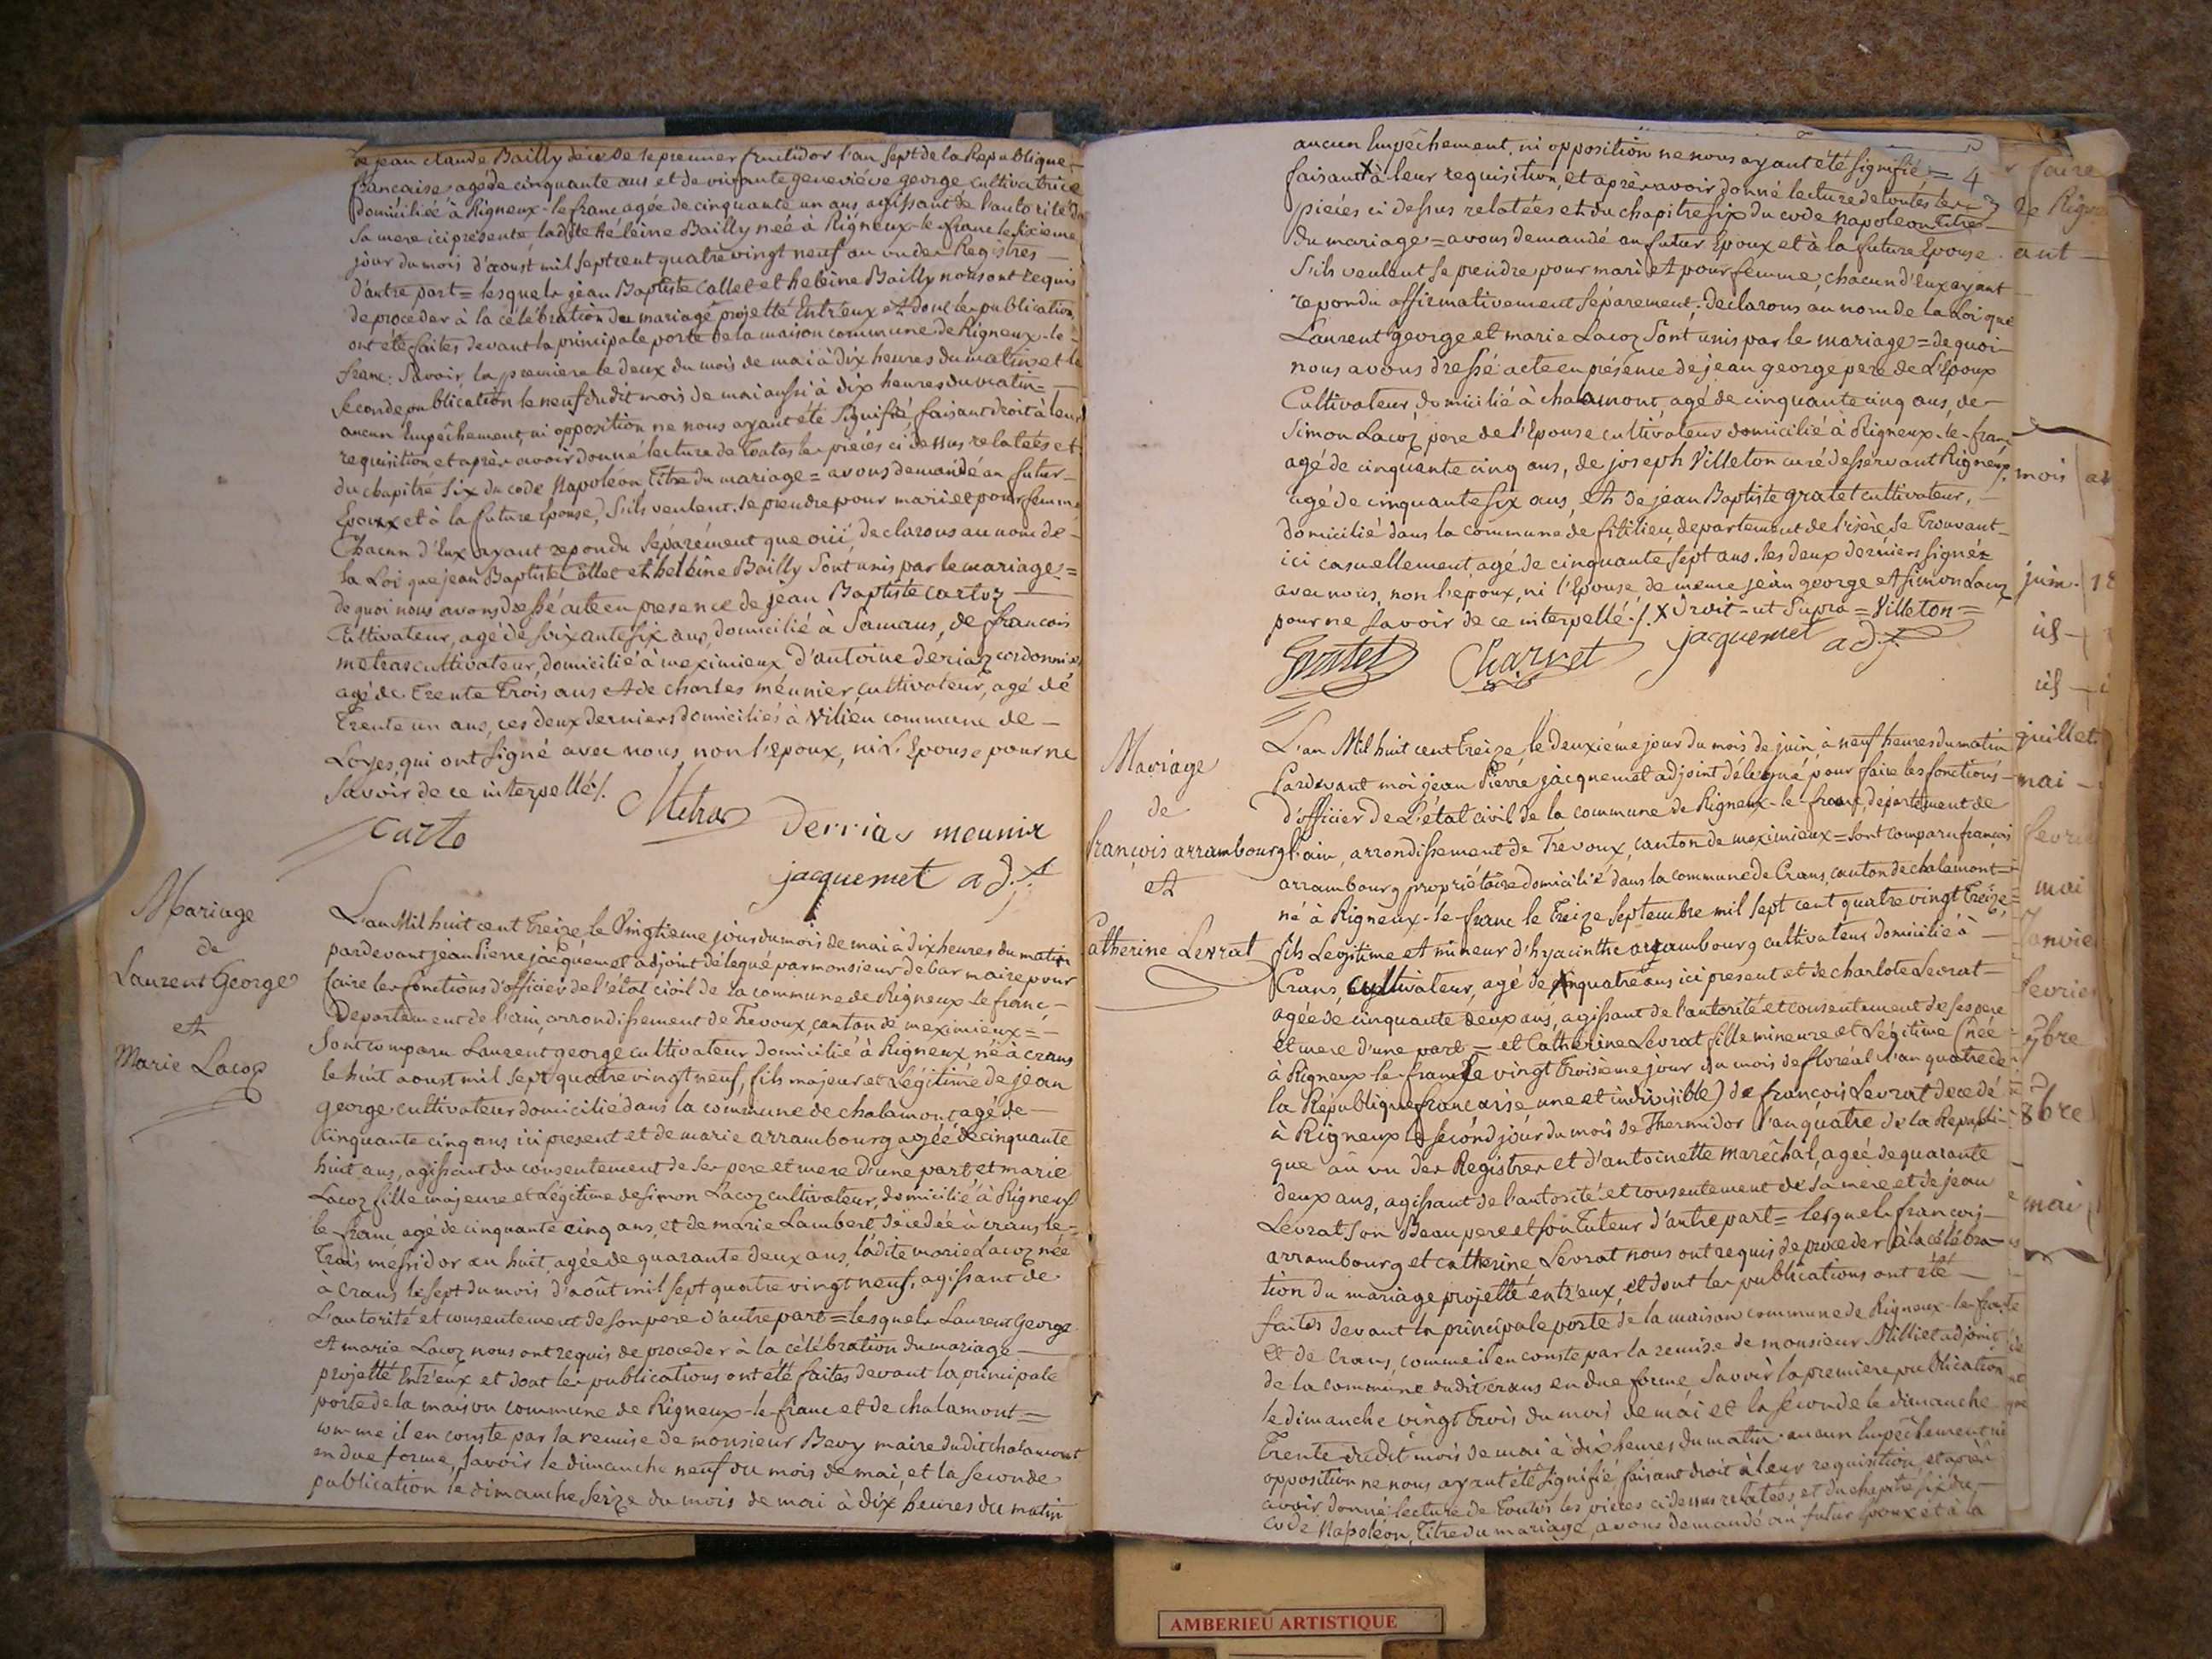 de jean claude Bailly décédé le premier fructidor l'an sept de la Republique
française agé de cinquante ans et de vivante geneviéve george cultivatrice
domiciliée à Rigneux-le franc agée de cinquante un ans agissant de l'autorité de
sa mere ici présente ladite heleine Bailly néé à Rigneux-le-franc le sixieme
jour du mois d'aoust mil septcent quatre vingt neuf au vu des Registres
d'autre part = lesquels jean Baptiste Collet et heleine Bailly nous ont requis
de proceder à la célébration du mariage projetté Entr'eux et dont les publications
ont été faites devant la principale porte de la maison commune de Rigneux-le
franc: Savoir la premiere le deux du mois de mai à dix heures du matin et la
seconde publication le neuf dudit mois de mai aussi à dix heures du matin =
aucun Empêchement, ni opposition ne nous ayant été signifié, faisant droit à leur
requisition et après avoir donné lecture de toutes les pieces ci dessus relatées et
du chapitre six du code Napoléon titre du mariage = avons demandé au futur
Epoux et à la future Epouse, s'ils veulent se prendre pour mari et pour femme
Chacun d'Eux ayant repondu séparément que oui, declarons au nom de
la Loi que jean Baptiste Collet et heleine Bailly Sont unis par le mariage =
de quoi nous avons dressé acte en presence de jean Baptiste cartoz
Cultivateur, agé de soixante six ans, domicilié à Samans, de francois
metras cultivateur, domicilié à meximieux d'antoine deriaz cordonnier
agé de trente trois ans et de charles méunier cultivateur, agé de
trente un ans, ces deux derniers domiciliés à Vilieu commune de
Loyes, qui ont signé avec nous, non l'Epoux, ni L'Epouse pour ne
savoir de ce interpellé/.
Metras
carto
Derrias meunier
jacquemet adj.t
Mariage
de
Laurent George
et
Marie Lacoz
L'an Mil huit cent treize, le Vingtieme jour du mois de mai à dix heures du matin
pardevant jean Pierre jacquemet adjoint délegué par monsieur debar maire pour
faire les fonctions d'officier de l'état civil de la commune de Rigneux le franc,
Departement de l'ain, arrondissement de Trevoux, canton de meximieux =
sont comparu Laurent george cultivateur domicilié à Rigneux né à crans
le huit aoust mil sept quatre vingt neuf, fils majeur et Légitime de jean
george cultivateur domicilié dans la commune de chalamont, agé de
cinquante cinq ans ici present et de marie arrambourg agéé de cinquante
huit ans, agissant du consentement de ses pere et mere d'une part et marie
Lacoz fille majeure et Légitime de Simon Lacoz cultivateur, domicilié à Rigneux
le franc agé de cinquante cinq ans, et de marie Lambert décedée à crans, le
trois messidor an huit, agée de quarante deux ans, ladite marie Lacoz née
à crans le sept du mois d'août mil sept quatre vingt neuf, agissant de
L'autorité et consentement de son pere d'autre part = lesquels Laurent George
et marie Lacoz nous ont requis de proceder à la célébration du mariage
projetté Entr'eux et dont les publications ont été faites devant la principale
porte de la maison commune de Rigneux-le franc et de chalamont =
comme il en conste par la remise de monsieur Bevy maire dudit chalamont
en due forme, savoir le dimanche neuf du mois de mai, et la seconde
publication le dimanche seize du mois de mai à dix heures du matin
aucun Empêchement, ni opposition ne nous ayant été signifié = 4
faisant X à leur requisition, et après avoir donné lecture de toutes les
pieces ci dessus relatées et du chapitre six du code napoleon titre
du mariage = avons demandé au futur Epoux et à la future Epouse
s'ils veulent se prendre pour mari et pour femme, chacun d'Eux ayant
repondu affirmativement séparement; declarons au nom de la Loi que
Laurent george et marie Lacoz Sont unis par le mariage = de quoi
nous avons dressé acte en présence de jean george pere de L'Epoux
Cultivateur domicilié à chalamont, agé de cinquante cinq ans, de
Simon Lacoz pere de l'Epouse cultivateur domicilié à Rigneux-le-franc
agé de cinquante cinq ans, de joseph Villeton curé desservant Rigneux
agé de cinquante six ans, et de jean Baptiste gratet cultivateur,
domicilié dans la commune de fitilieu, departement de l'isère se trouvant
ici casuellement agé de cinquante sept ans. les deux derniers signés
avec nous, non l'époux, ni l'Epouse de meme jean george et simon Lacoz
pour ne savoir de ce interpellé./. X droit - ut supra = Villeton =
Gratet Charvet jacquemet adj.t
Mariage
de
françois arrambourg
et
Catherine Levrat
L'an Mil huit cent treize, le deuxiéme jour du mois de juin à neuf heures du matin
Pardevant moi jean Pierre jacquemet adjoint délegué pour faire les fonctions
d'officier de L'état civil de la commune de Rigneux-le-franc, département de
l'ain, arrondissement de Trevoux, canton de meximieux = sont comparu françois
arrambourg propriétaire domicilié dans la commune de Crans, canton de chalamont
né à Rigneux-le-franc le treize septembre mil sept cent quatre vingt treize,
fils Legitime et mineur d'hyacinthe arrambourg cultivateur domicilié à
Crans, cultivateur, agé de ans ici present et de charlote Levrat
agée de cinquante deux ans, agissant de l'autorité et consentement de ses pere
et mere d'une part = et Catherine Levrat fille mineure et Légitime (née
à Rigneux-le-franc le vingt troisième jour du mois de floréal l'an quatre de
la République française une et indivisible) de françois Levrat décedé
à Rigneux le second jour du mois de Thermidor l'an quatre de la Republi-
que au vu des Registres et d'antoinette maréchal, agée de quarante
deux ans, agissant de l'autorité et consentement de sa mere et de jean
Levrat son Beau pere et son tuteur d'autre part = lesquels francois
arrambourg et catherine Levrat nous ont requis de proceder à la célébra-
tion du mariage projetté entr'eux, et dont les publications ont été
faites devant la principale porte de la maison commune de Rigneux-le-franc
et de Crans, comme il en conste par la remise de monsieur Milliet adjoint
de la commune dudit crans en due forme, savoir la premiere publication
le dimanche vingt trois du mois de mai et la seconde le dimanche
trente dudit mois de mai à dix heures du matin. aucun Empêchement ni
opposition ne nous ayant été signifié faisant droit à leur requisition, et après
avoir donné lecture de toutes les pieces ci dessus relatées et du chapitre six du
code Napoléon, titre du mariage, avons demandé au futur Epoux et à la
faire
de Rigne
ant
mois
juin 18
id
id
juillet
mai
fevrie
mai
Janvie
fevrie
7bre
8bre
mai
AMBERIEU ARTISTIQUE